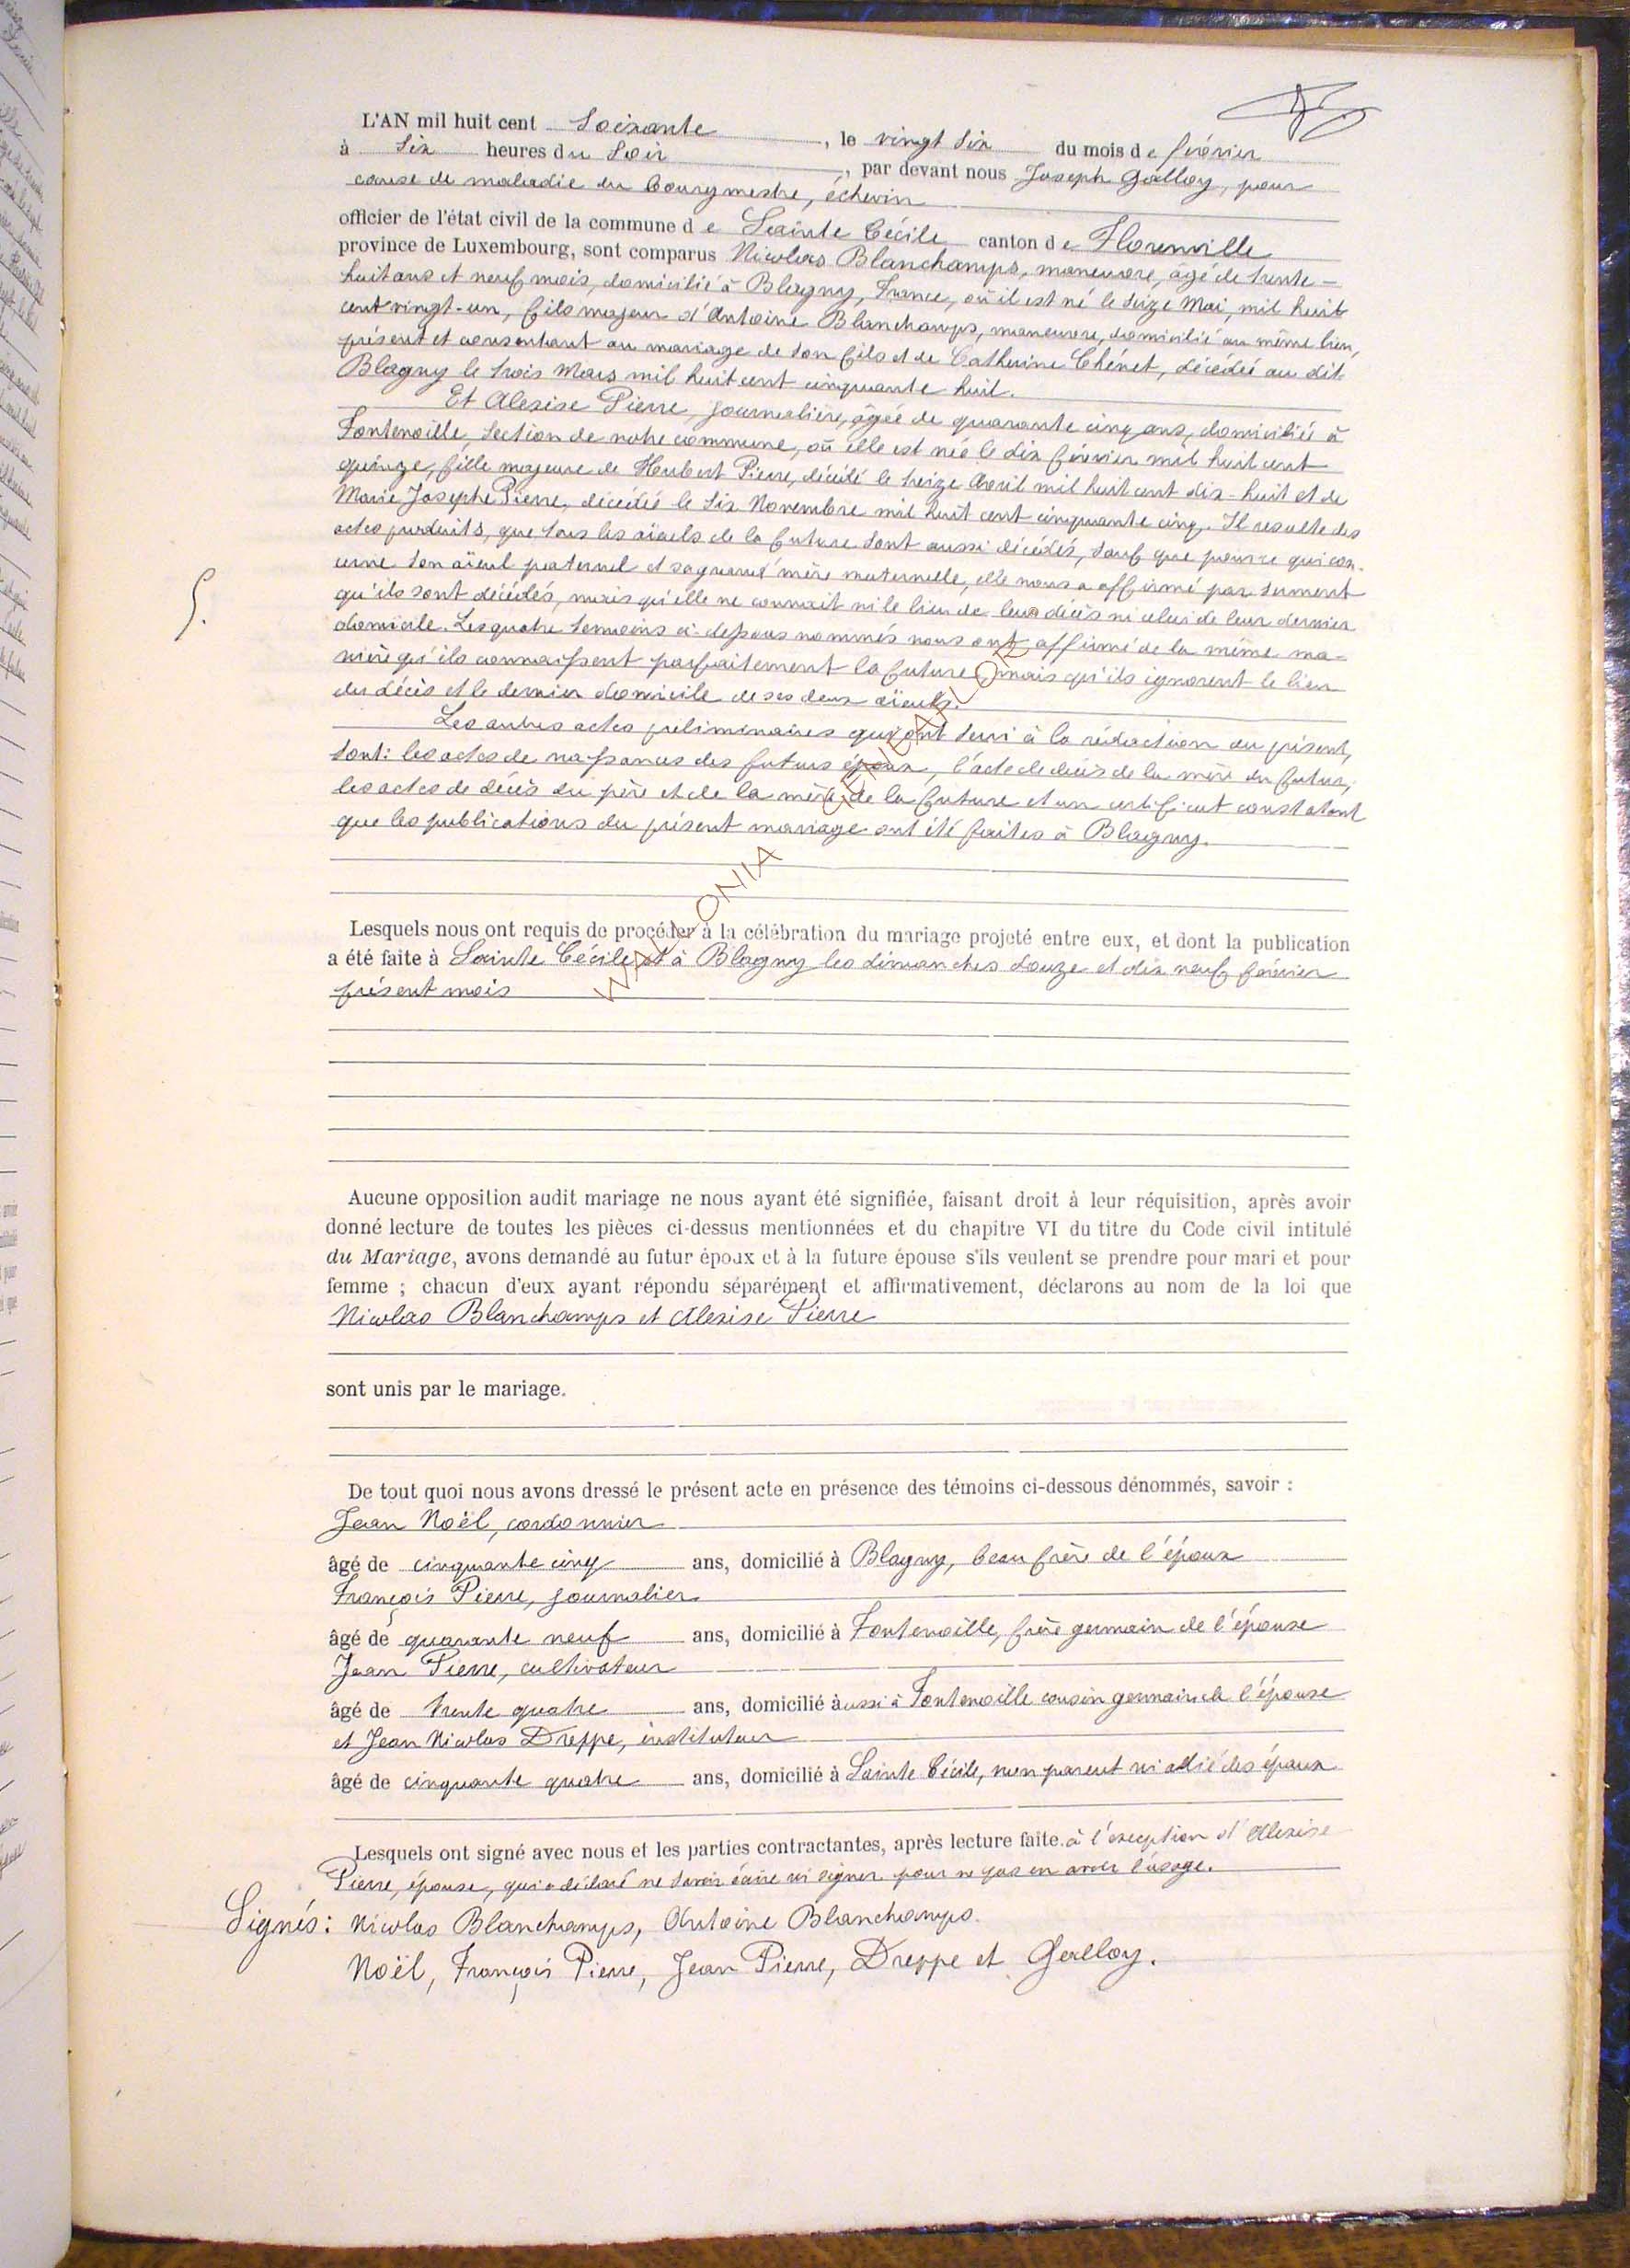 L'AN mil huit cent Soixante, le vingt six du mois de février
à Six heures du Soir, par devant nous Joseph Galloy, pour
cause de maladie du bourgmestre, échevin
officier de l'état civil de la commune de Sainte Cécile canton de Florenville
province de Luxembourg, sont comparus Nicolas Blanchamps, manœuvre, âgé de trente-
huit ans et neuf mois, domicilié à Blagny, France, où il est né le seize Mai, mil huit
cent vingt-un, fils majeur d'Antoine Blanchamps, manœuvre, domicilié au même lieu,
présent et consentant au mariage de son fils et de Catherine Chénet, décédée au dit
Blagny le trois Mars mil huit cent cinquante huit.
Et Alexise Pierre, journalière, âgée de quarante cinq ans, domiciliée à
Fontenoille, section de notre commune, où elle est née le dix février mil huit cent
quinze, fille majeure de Hubert Pierre, décédé le treize Avril mil huit cent dix-huit et de
Marie Josephe Pierre, décédée le six Novembre mil huit cent cinquante cinq. Il resulte des
actes produits, que tous les aïeuls de la future sont aussi décédés, sauf que pour ce qui con-
cerne son aïeul paternel et sa grand'mère maternelle, elle nous a affirmé par serment
qu'ils sont décédés, mais qu'elle ne connait ni le lieu de leur décès ni celui de leur dernier
5.
domicile. Les quatre temoins ci-dessous nommés nous ont affirmé de la même ma-
nière qu'ils connaissent parfaitement la future mais qu'ils ignorent le lieu
du décès et le dernier domicile de ses deux aïeuls.
Les autres actes préliminaires qui ont servi à la rédaction du présent,
sont: les actes de naissances des futurs époux, l'acte de décès de la mère du futur,
les actes de décès du père et de la mère de la future et un certificat constatant
que les publications du présent mariage ont été faites à Blagny.
WALLONIA GENEAFLORE
Lesquels nous ont requis de procéder à la célébration du mariage projeté entre eux, et dont la publication
a été faite à Sainte Cécile et à Blagny les dimanches douze et dix neuf février
présent mois
Aucune opposition audit mariage ne nous ayant été signifiée, faisant droit à leur réquisition, après avoir
donné lecture de toutes les pièces ci-dessus mentionnées et du chapitre VI du titre du Code civil intitulé
du Mariage, avons demandé au futur époux et à la future épouse s'ils veulent se prendre pour mari et pour
femme ; chacun d'eux ayant répondu séparément et affirmativement, déclarons au nom de la loi que
Nicolas Blanchamps et Alexise Pierre
sont unis par le mariage.
De tout quoi nous avons dressé le présent acte en présence des témoins ci-dessous dénommés, savoir :
Jean Noël, cordonnier
âgé de cinquante cinq ans, domicilié à Blagny, beau frère de l'époux
François Pierre, journalier
âgé de quarante neuf ans, domicilié à Fontenoille, frère germain de l'épouse
Jean Pierre, cultivateur
âgé de trente quatre ans, domicilié aussi à Fontenoille cousin germain de l'épouse
et Jean Nicolas Dreppe, instituteur
âgé de cinquante quatre ans, domicilié à Sainte Cécile, non parent ni allié des époux
Lesquels ont signé avec nous et les parties contractantes, après lecture faite. à l'exception d'Alexise
Pierre, épouse, qui a déclaré ne savoir écrire ni signer pour ne pas en avoir l'usage.
Signés: Nicolas Blanchamps, Antoine Blanchamps.
Noël, François Pierre, Jean Pierre, Dreppe et Galloy.